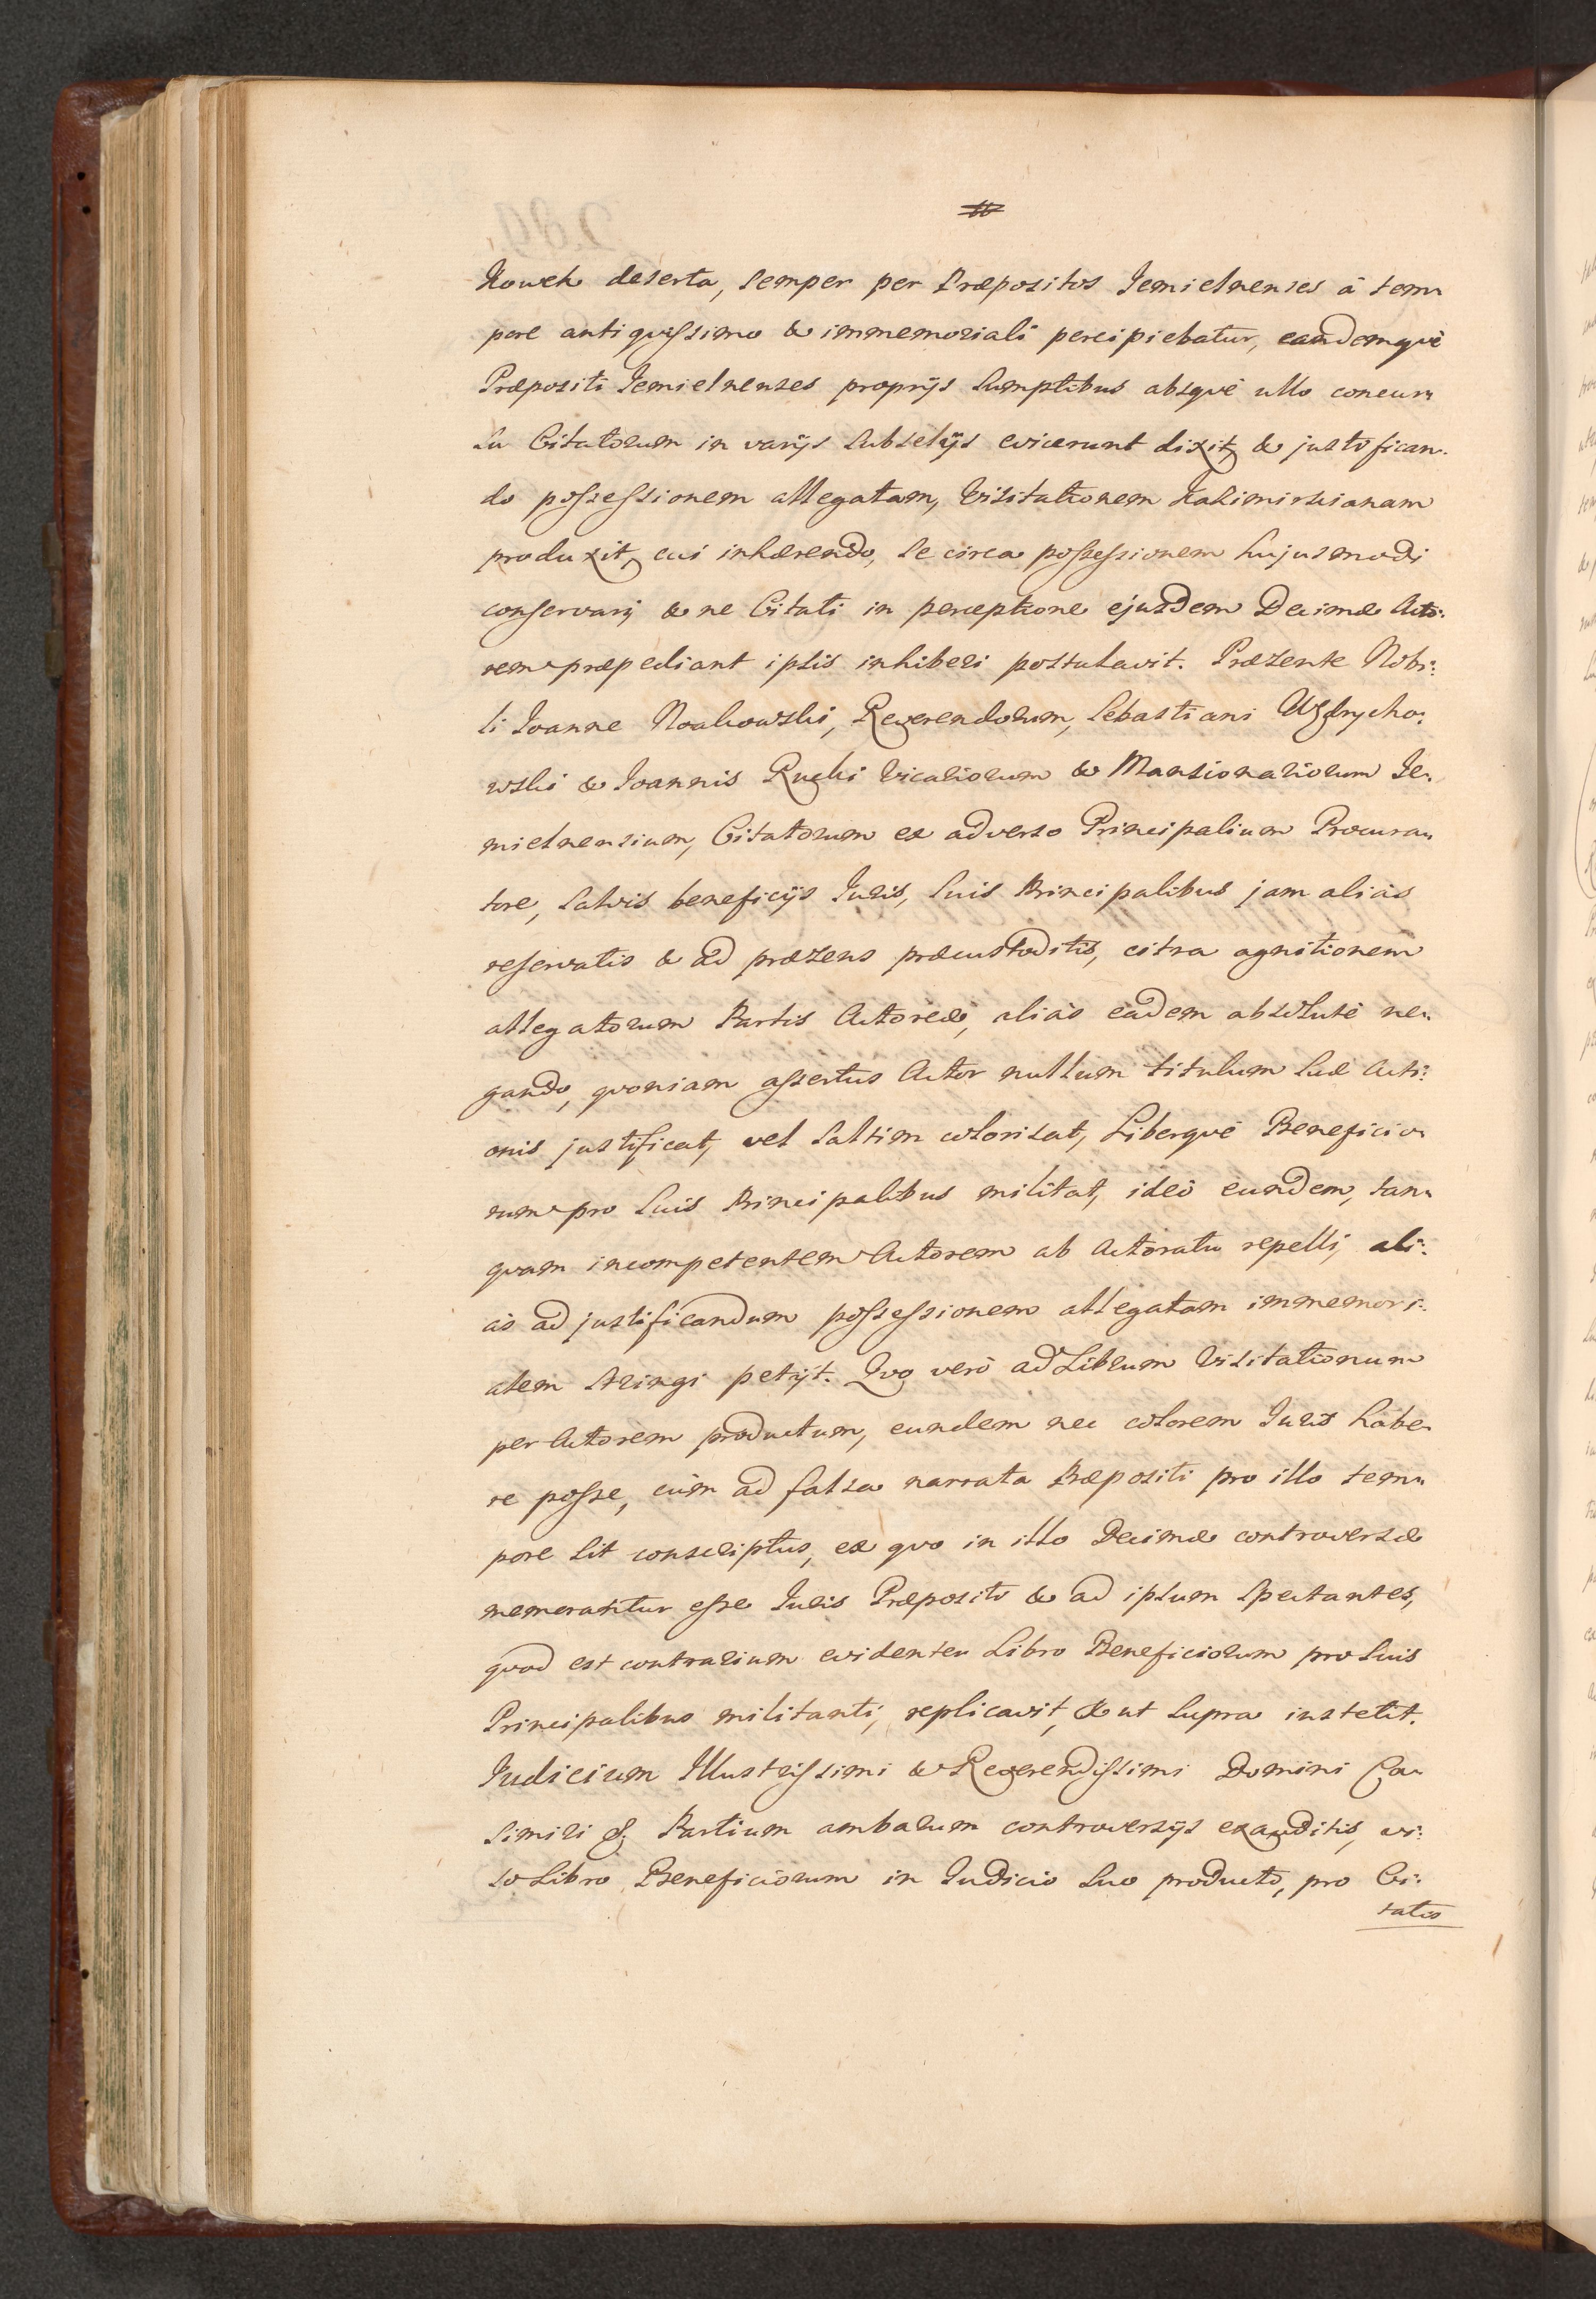 Kowek deserta, semper per Præpositos Jemielnenses â tem„
pore antiquissimo & immemoriali percipiebatur, eandemquè
Præpositi Jemielnenses proprijs sumptibus absquè ullo concur„
su Citatorum in varijs subselijs evicerunt dixit, & justifican„
do possessionem allegatam, Visitationem Kazimirscianam
produxit, cui inhærendo, se circa possessionem hujusmodi
conservari, & ne Citati in perceptione ejusdem Decimæ Acto:
rem præpediant ipsis inhiberi postulavit. Præsente Nobi:
li Joanne Noakowski, Reverendorum, Sebastiani Uzdrycho:
wski & Joannis Rucki Vicariorum & Mansionariorum Je„
mielnensium, Citatorum ex adverso Principalium Procura„
tore, salvis beneficijs Juris, suis Principalibus jam aliàs
reservatis & ad præsens præcustoditis, citra agnitionem
allegatorum Partis Actoreæ, aliàs eadem absolutè ne„
gando, quoniam assertus Actor nullum titulum suæ Acti:
onis justificat, vel saltim colorisat, Liberquè Beneficio„
rum pro suis Principalibus militat, ideò eundem, tan„
quam incompetentem Actorem ab Actoratu repelli, ali:
às ad justificandum possessionem allegatam immemori:
alem stringi petijt. Quo verò ad Librum Visitationum
per Actorem productum, eundem nec colorem Juris habe„
re posse, cùm ad falsa narrata Præpositi pro illo tem„
pore sit conscriptus, ex quo in illo Decimæ controversæ
memorantur esse Juris Præpositi & ad ipsum spectantes,
quod est contrarium evidenter Libro Beneficiorum pro suis
Principalibus militanti, replicavit, & ut supra institit.
Judicium Illustrissimi & Reverendissimi Domini Ca„
simiri &. Partium ambarum controversijs exauditis, vi:
so Libro Beneficiorum in Judicio suo producto, pro Ci:
tatis